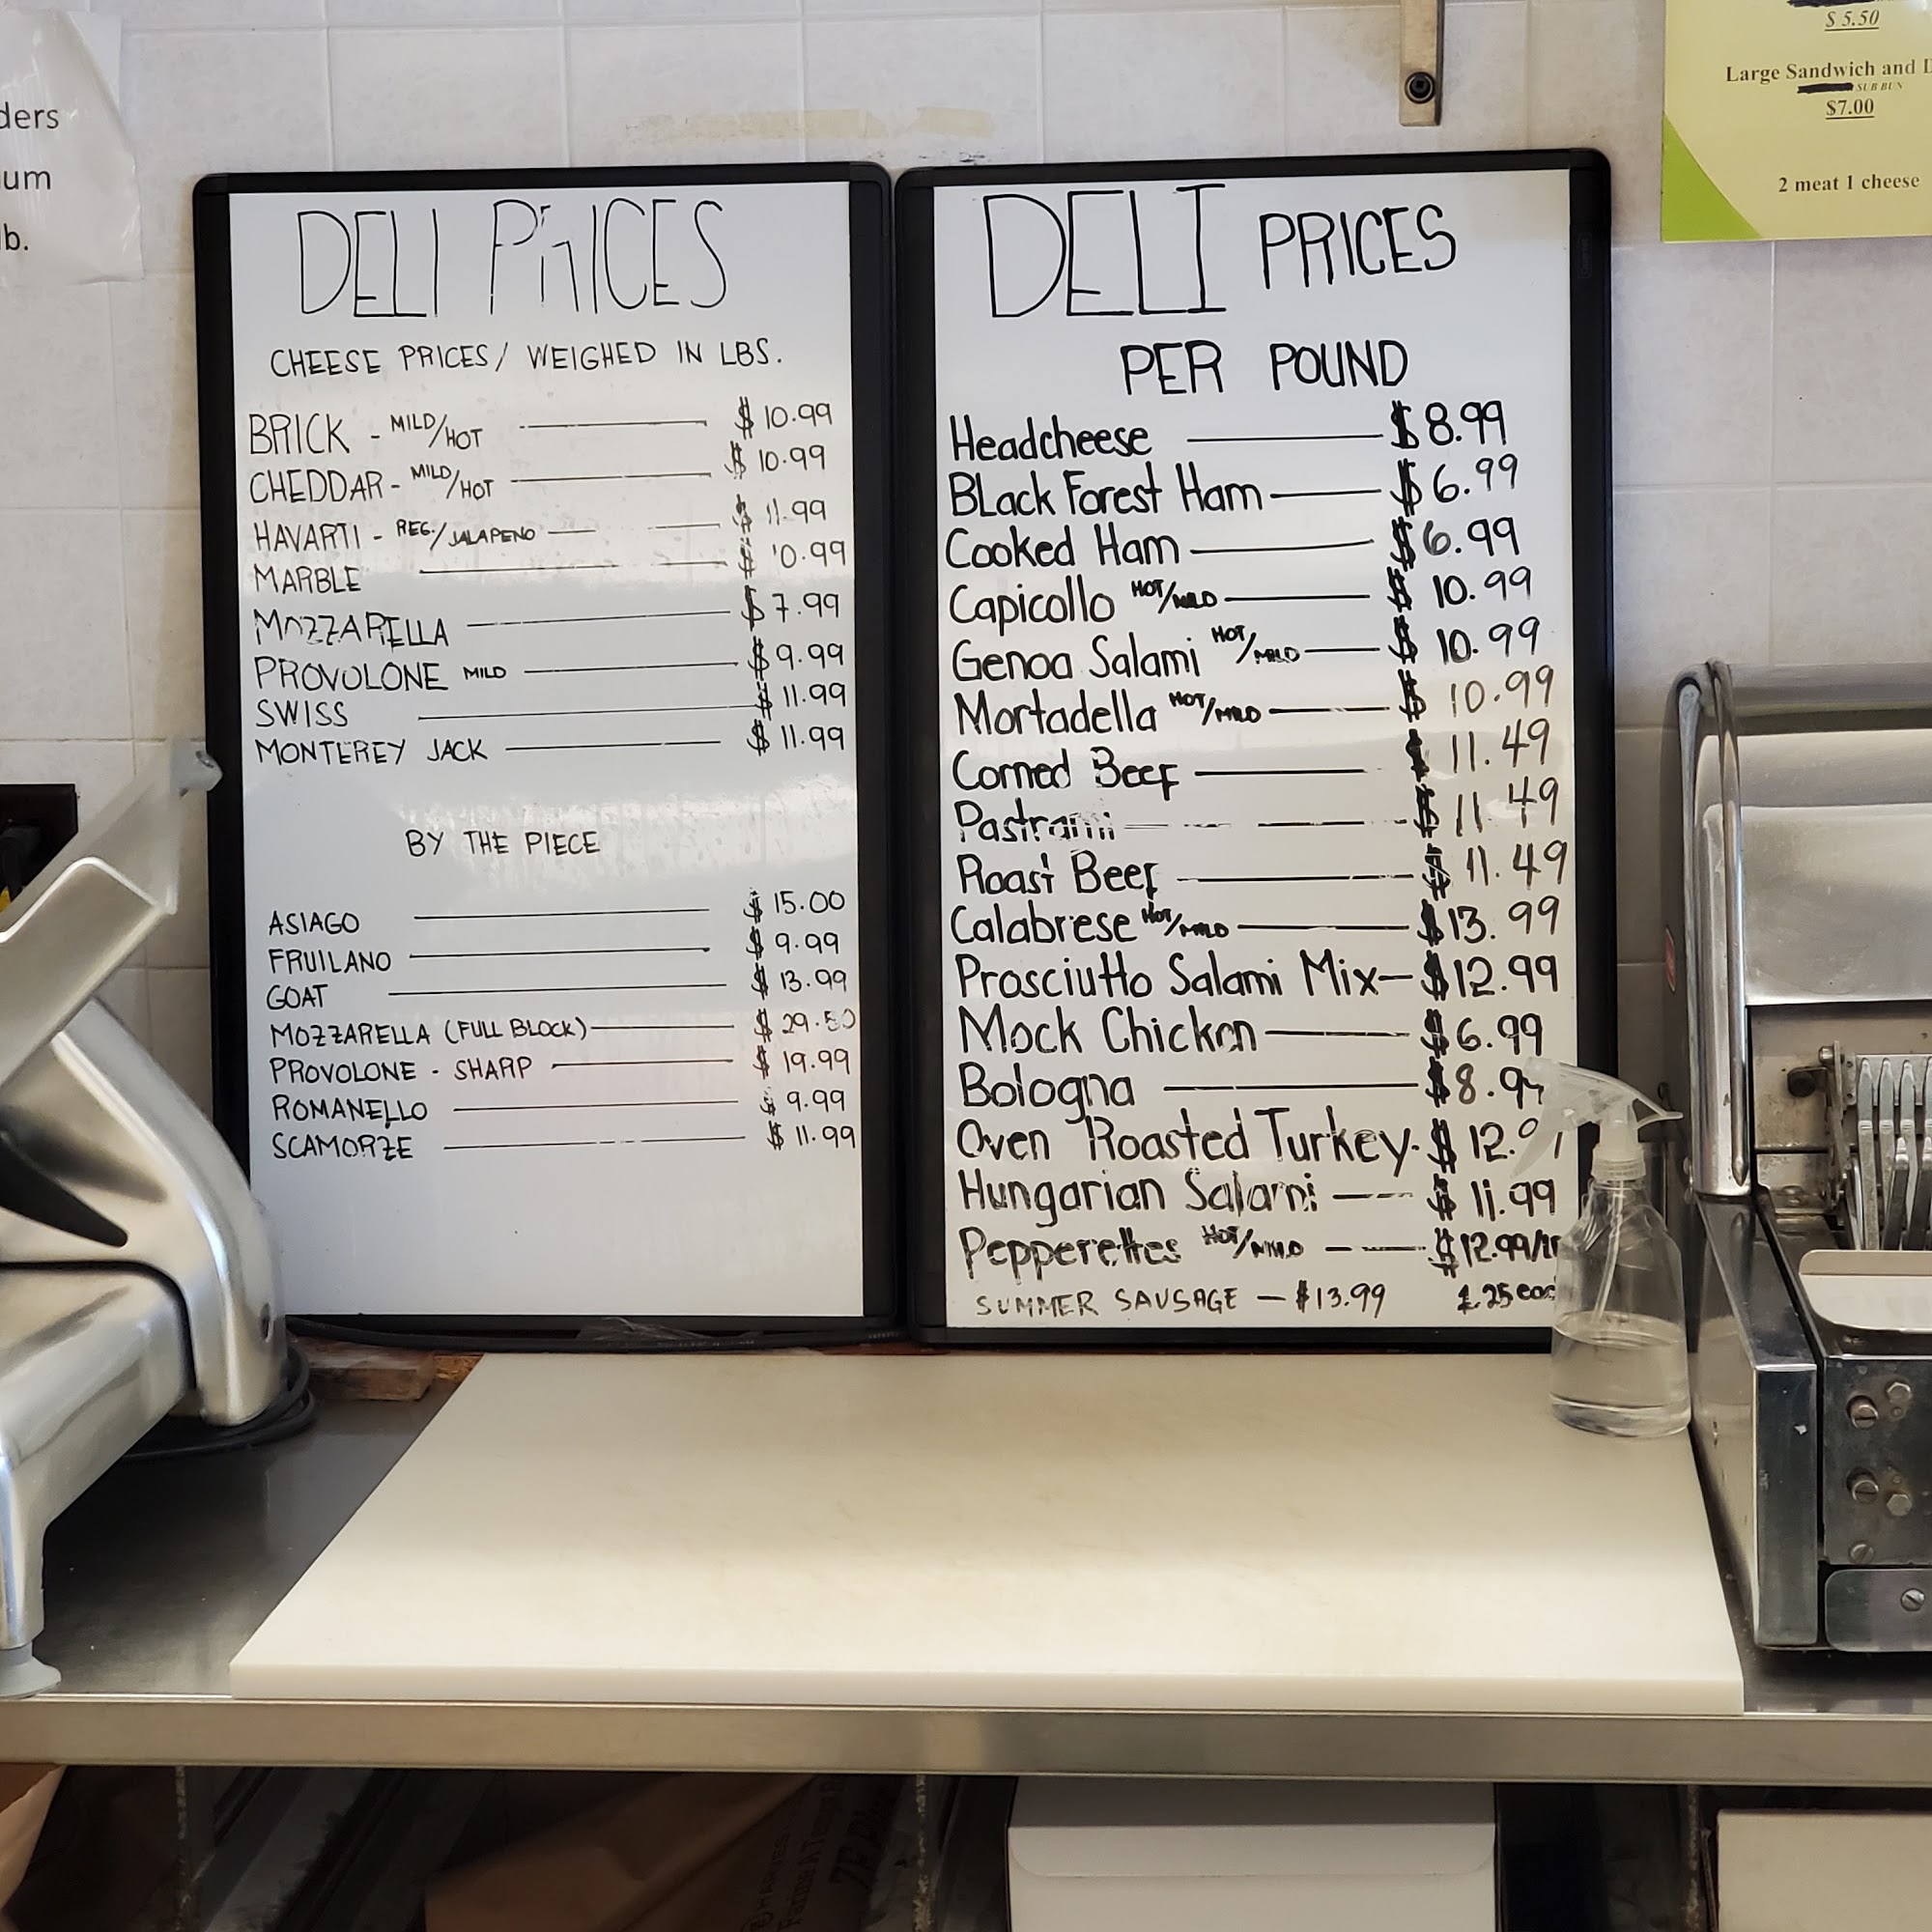 ders
um
b.
$ 5.50
Large Sandwich and D
SUB BUN
$7.00
2 meat 1 cheese
DELI PRICES
CHEESE PRICES/ WEIGHED IN LBS.
BRICK - MILD/HOT $ 10.99
CHEDDAR - MILD/HOT $ 10.99
HAVARTI - REG./JALAPENO $ 11.99
MARBLE $ 10.99
MOZZARELLA $ 7.99
PROVOLONE MILD $ 9.99
SWISS $ 11.99
MONTEREY JACK $ 11.99
BY THE PIECE
ASIAGO $ 15.00
FRUILANO $ 9.99
GOAT $ 13.99
MOZZARELLA (FULL BLOCK) $ 29.50
PROVOLONE - SHARP $ 19.99
ROMANELLO $ 9.99
SCAMORZE $ 11.99
DELI PRICES
PER POUND
Headcheese $ 8.99
Black Forest Ham $ 6.99
Cooked Ham $ 6.99
Capicollo HOT/MILD $ 10.99
Genoa Salami HOT/MILD $ 10.99
Mortadella HOT/MILD $ 10.99
Corned Beef $ 11.49
Pastrami $ 11.49
Roast Beef $ 11.49
Calabrese HOT/MILD $ 13.99
Prosciutto Salami Mix $ 12.99
Mock Chicken $ 6.99
Bologna $ 8.99
Oven Roasted Turkey $ 12.99
Hungarian Salami $ 11.99
Pepperettes HOT/MILD $ 12.99/
SUMMER SAUSAGE - $13.99 1.25 eac